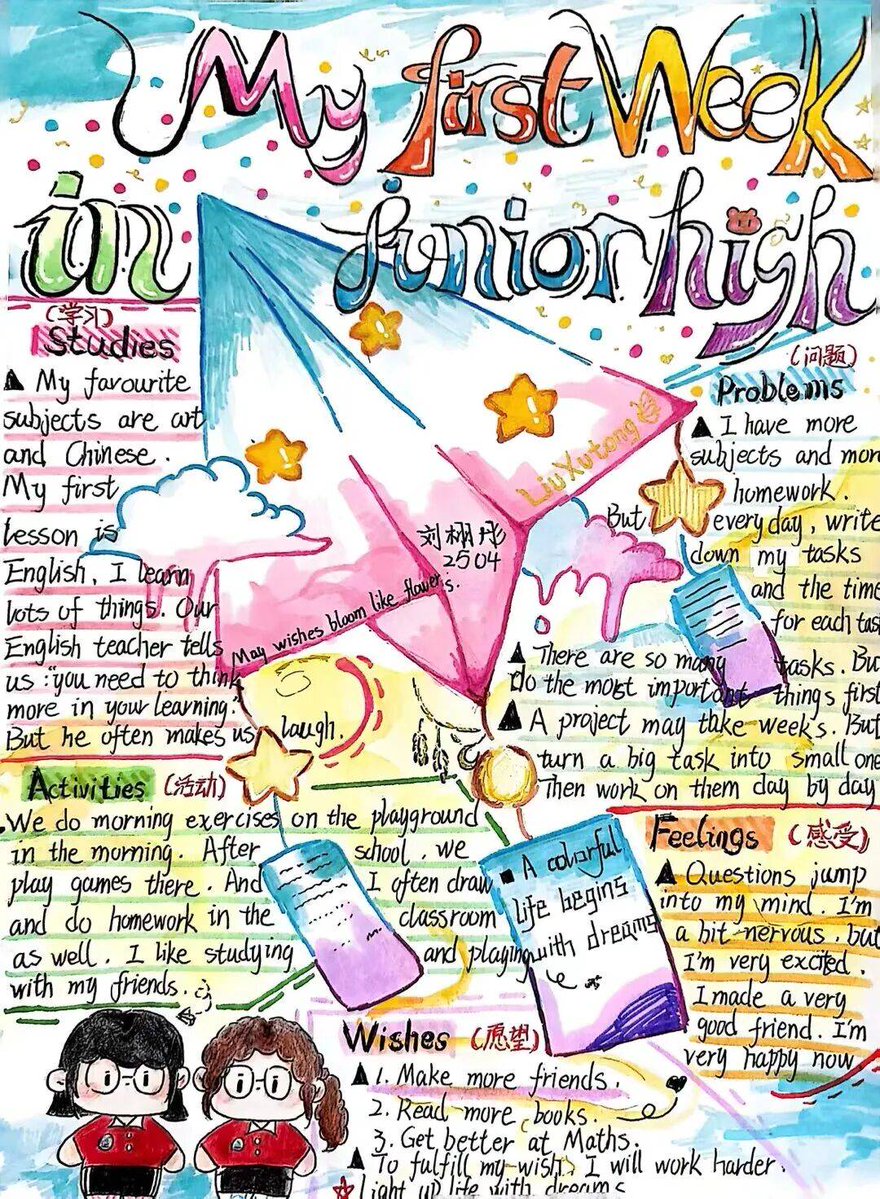 My first Week
in Junior high
(学习)
Studies
▲ My favourite
subjects are art
and Chinese.
My first
lesson is
English, I learn
lots of things. Our
English teacher tells
us: "you need to think
more in your learning."
But he often makes us laugh.
LiuXutong
刘栩彤
2504
May wishes bloom like flowers.
(问题)
Problems
▲ I have more
subjects and mor
homework.
But everyday, write
down my tasks
and the time
for each task
▲ There are so many tasks. But
do the most important things first
▲ A project may take weeks. But
turn a big task into small one
Then work on them day by day
Activities (活动)
We do morning exercises on the playground
in the morning. After school, we
play games there. And I often draw
and do homework in the classroom
as well. I like studying and playing
with my friends.
■ A colorful
life begins
with dreams
Feelings (感受)
▲ Questions jump
into my mind. I'm
a bit nervous, but
I'm very excited.
I made a very
good friend. I'm
very happy now
Wishes (愿望)
▲ 1. Make more friends.
2. Read more books.
3. Get better at Maths.
▲ To fulfill my wish, I will work harder.
☆ Light up life with dreams